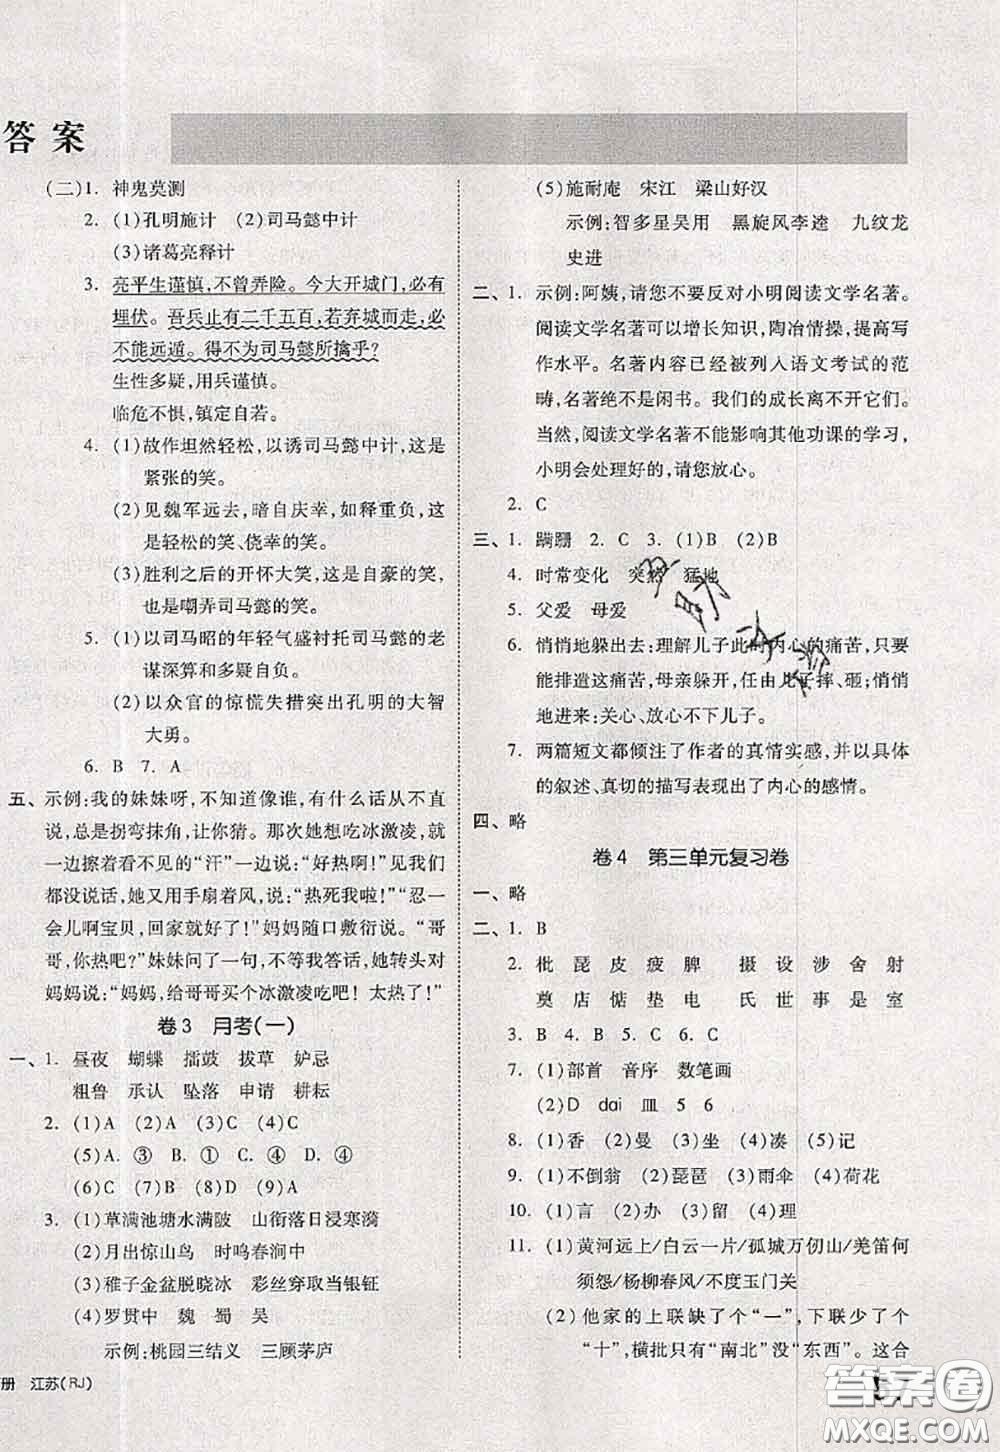 答案
(二)1. 神鬼莫测
2. (1)孔明施计 (2)司马懿中计
(3)诸葛亮释计
3. 亮平生谨慎,不曾弄险。今大开城门,必有
埋伏。吾兵止有二千五百,若弃城而走,必
不能远遁。得不为司马懿所擒乎?
生性多疑,用兵谨慎。
临危不惧,镇定自若。
4. (1)故作坦然轻松,以诱司马懿中计,这是
紧张的笑。
(2)见魏军远去,暗自庆幸,如释重负,这
是轻松的笑、侥幸的笑。
(3)胜利之后的开怀大笑,这是自豪的笑,
也是嘲弄司马懿的笑。
5. (1)以司马昭的年轻气盛衬托司马懿的老
谋深算和多疑自负。
(2)以众官的惊慌失措突出孔明的大智
大勇。
6. B 7. A
五、示例:我的妹妹呀,不知道像谁,有什么话从不直
说,总是拐弯抹角,让你猜。那次她想吃冰激凌,一
边擦着看不见的“汗”一边说:“好热啊!”见我们
都没说话,她又用手扇着风,说:“热死我啦!”“忍一
会儿啊宝贝,回家就好了!”妈妈随口敷衍道。“哥
哥,你热吧?”妹妹问了一句,不等我答话,她转头对
妈妈说:“妈妈,给哥哥买个冰激凌吃吧!太热了!”
卷3 月考(一)
一、1. 昼夜 蝴蝶 擂鼓 拔草 妒忌
粗鲁 承认 坠落 申请 耕耘
2. (1)A (2)A (3)C (4)C
(5)A. ③ B. ① C. ④ D. ④
(6)C (7)D (8)C (9)A
3. (1)草满池塘水满陂 山衔落日浸寒漪
(2)月出惊山鸟 时鸣春涧中
(3)稚子金盆脱晓冰 彩丝穿取当银钲
(4)罗贯中 魏 蜀 吴
示例:桃园三结义 三顾茅庐
册 江苏(RJ)
(5)施耐庵 宋江 梁山好汉
示例:智多星吴用 黑旋风李逵 九纹龙
史进
二、1. 示例:阿姨,请您不要反对小明阅读文学名著。
阅读文学名著可以增长知识,陶冶情操,提高写
作水平。名著内容已经被列入语文考试的范
畴,名著绝不是闲书。我们的成长离不开它们。
当然,阅读文学名著不能影响其他功课的学习,
小明会处理好的,请您放心。
2. C
三、1. 蹒跚 2. C 3. (1)B (2)B
4. 时常变化 突然 猛地
5. 父爱 母爱
6. 悄悄地躲出去:理解儿子此时内心的痛苦,只要
能排遣这痛苦,母亲躲开,任由儿子摔、砸;悄悄
地进来:关心、放心不下儿子。
7. 两篇短文都倾注了作者的真情实感,并以具体
的叙述、真切的描写表现出了内心的感情。
四、略
卷4 第三单元复习卷
一、略
二、1. B
2. 枇 琵 皮 疲 脾 摄 设 涉 舍 射
奠 店 惦 垫 电 氏 世 事 是 室
3. B 4. B 5. C 6. C
7. (1)部首 音序 数笔画
(2)D dai 皿 5 6
8. (1)香 (2)曼 (3)坐 (4)凑 (5)记
9. (1)不倒翁 (2)琵琶 (3)雨伞 (4)荷花
10. (1)言 (2)办 (3)留 (4)理
11. (1)黄河远上/白云一片/孤城万仞山/羌笛何
须怨/杨柳春风/不度玉门关
(2)他家的上联缺了个“一”,下联少了个
“十”,横批只有“南北”没“东西”。这合
答案圈
MXQE.COM